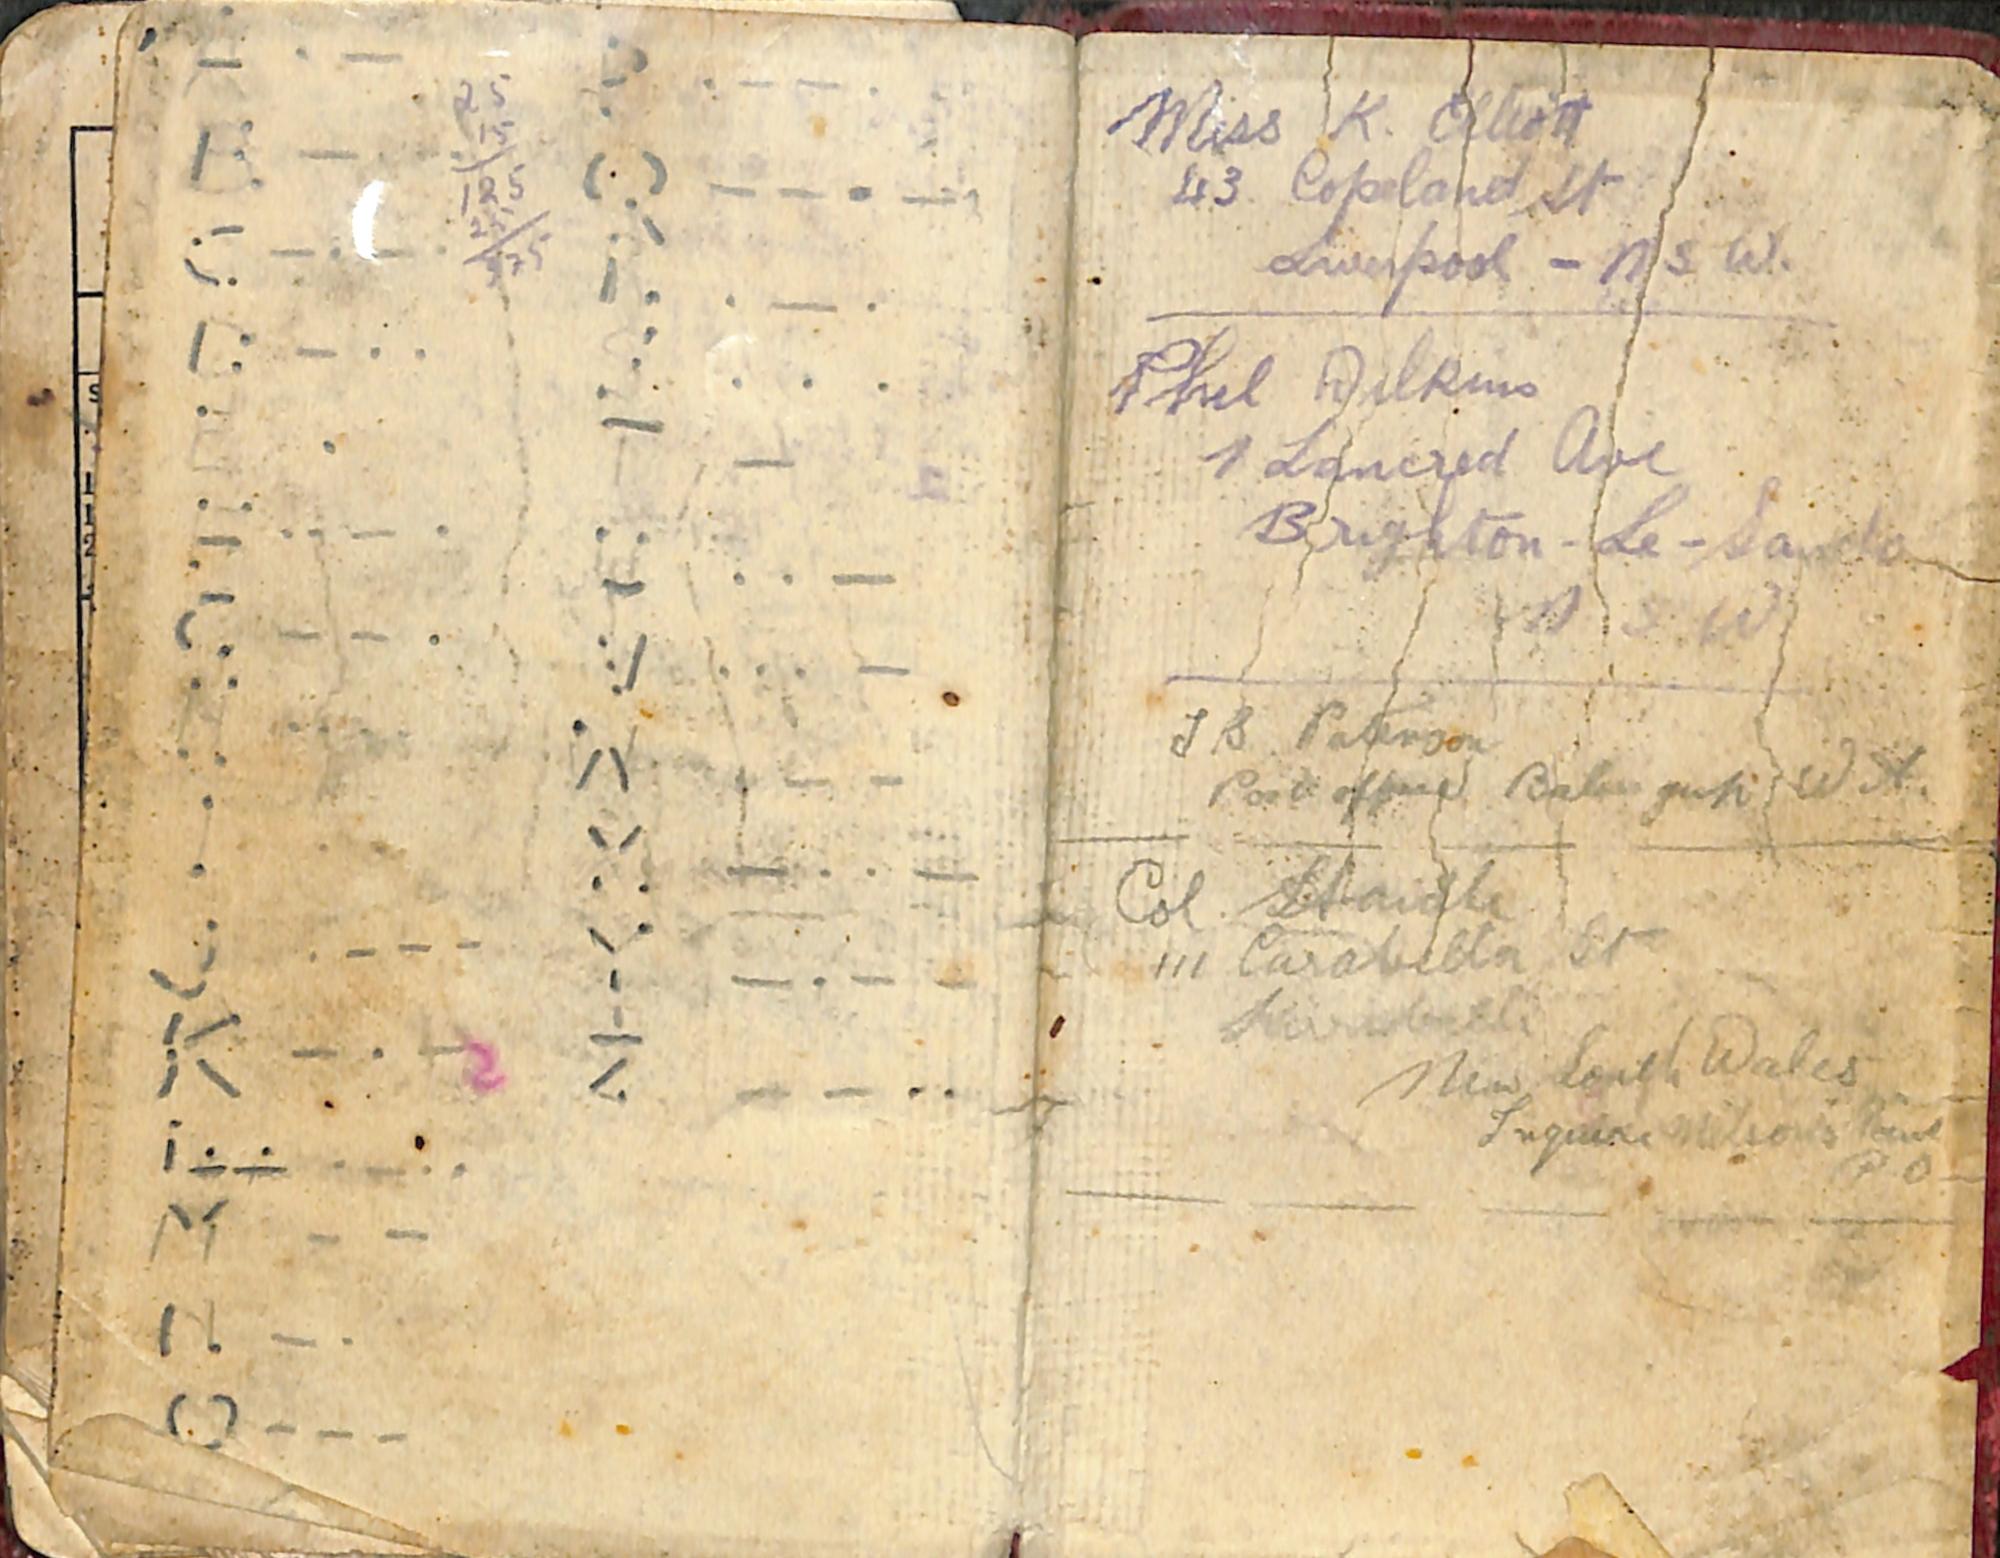 A · —
B — · · ·
C — · — ·
D — · ·
E ·
F · · — ·
G — — ·
H · · · ·
I
J · — — —
K — · —
L · — · ·
M — —
N — ·
O — — —
25
15
125
25
375
P · — — ·
Q — — · —
R · — ·
S · · ·
T —
U · · —
V · · · —
W · — —
X — · · —
Y — · — —
Z — — · ·
Miss K. Elliott
43 Copeland St
Liverpool - N S W.
Phil Wilkins
1 Tancred Ave
Brighton-Le-Sands
N S W
J B Paterson
Post office Balingup W A.
Col
111 Carabella St
Kirribilli
New South Wales
Inquire Milsons Point
P O